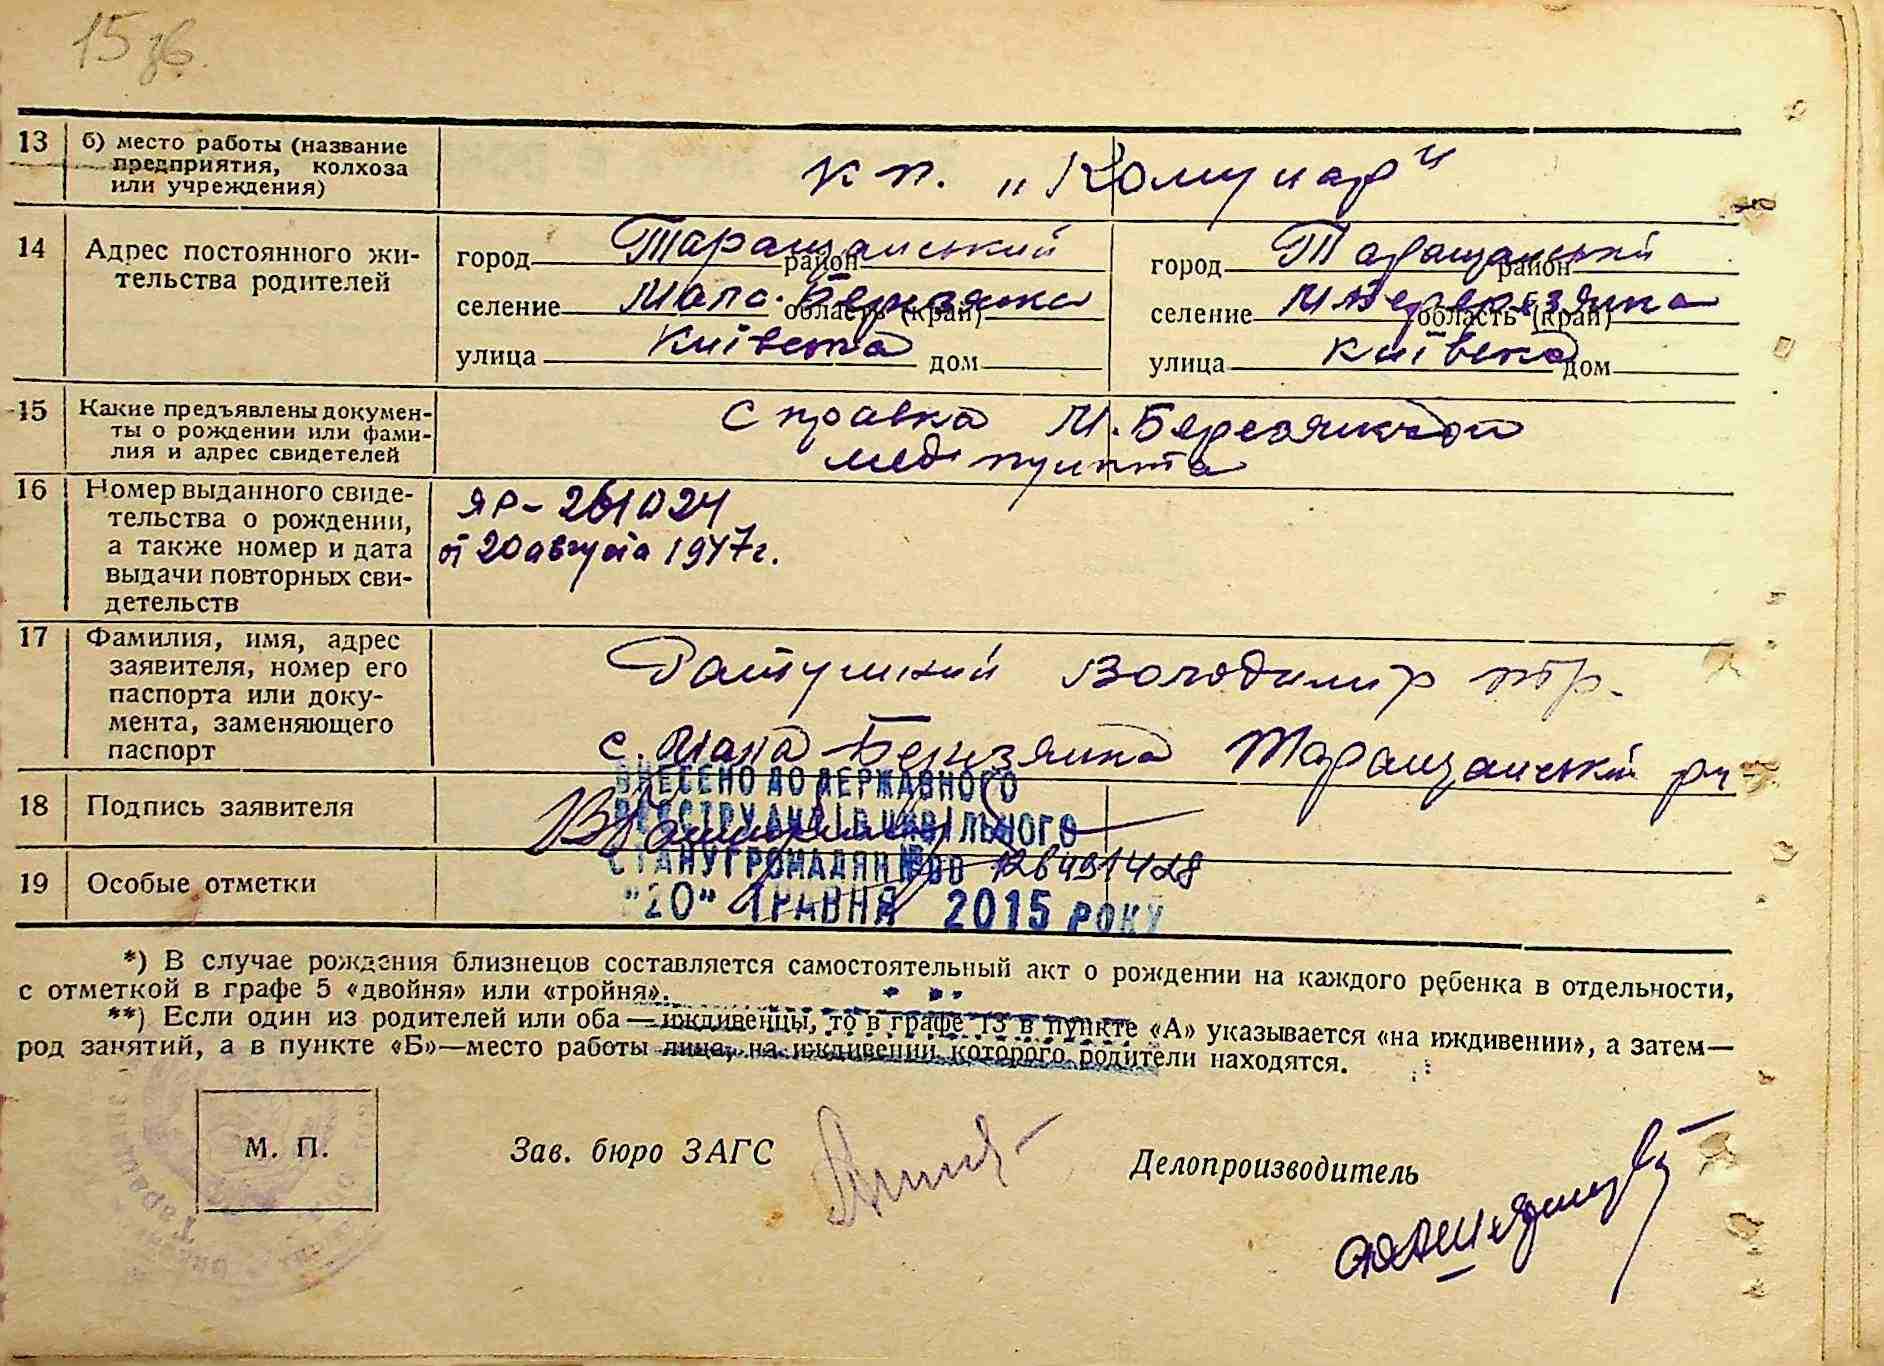 15 зв.
13 б) место работы (название к п. „Комунар"
предприятия, колхоза
или учреждения)
14 Адрес постоянного жи-
тельства родителей
город Таращанський район
селение Мала-Березянка область (край)
улица Київська дом
город Таращанський район
селение М Березянка область (край)
улица Київська дом
15 Какие предъявлены докумен-
ты о рождении или фами-
лия и адрес свидетелей
Справка М. Березянской
медпункта
16 Номер выданного свиде-
тельства о рождении,
а также номер и дата
выдачи повторных сви-
детельств
ЯР-261024
от 20 августа 1947г.
17 Фамилия, имя, адрес
заявителя, номер его
паспорта или доку-
мента, заменяющего
паспорт
Ратушний Володимир
с. Мала Березянка Таращанський р-н
18 Подпись заявителя
19 Особые отметки
ВНЕСЕНО ДО ДЕРЖАВНОГО
РЕЄСТРУ АКТІВ ЦИВІЛЬНОГО
СТАНУ ГРОМАДЯН №00 126491428
"20" ТРАВНЯ 2015 РОКУ
*) В случае рождения близнецов составляется самостоятельный акт о рождении на каждого ребенка в отдельности,
с отметкой в графе 5 «двойня» или «тройня».
**) Если один из родителей или оба—иждивенцы, то в графе 13 в пункте «А» указывается «на иждивении», а затем—
род занятий, а в пункте «Б»—место работы лица, на иждивении которого родители находятся.
М. П.
Зав. бюро ЗАГС
Делопроизводитель